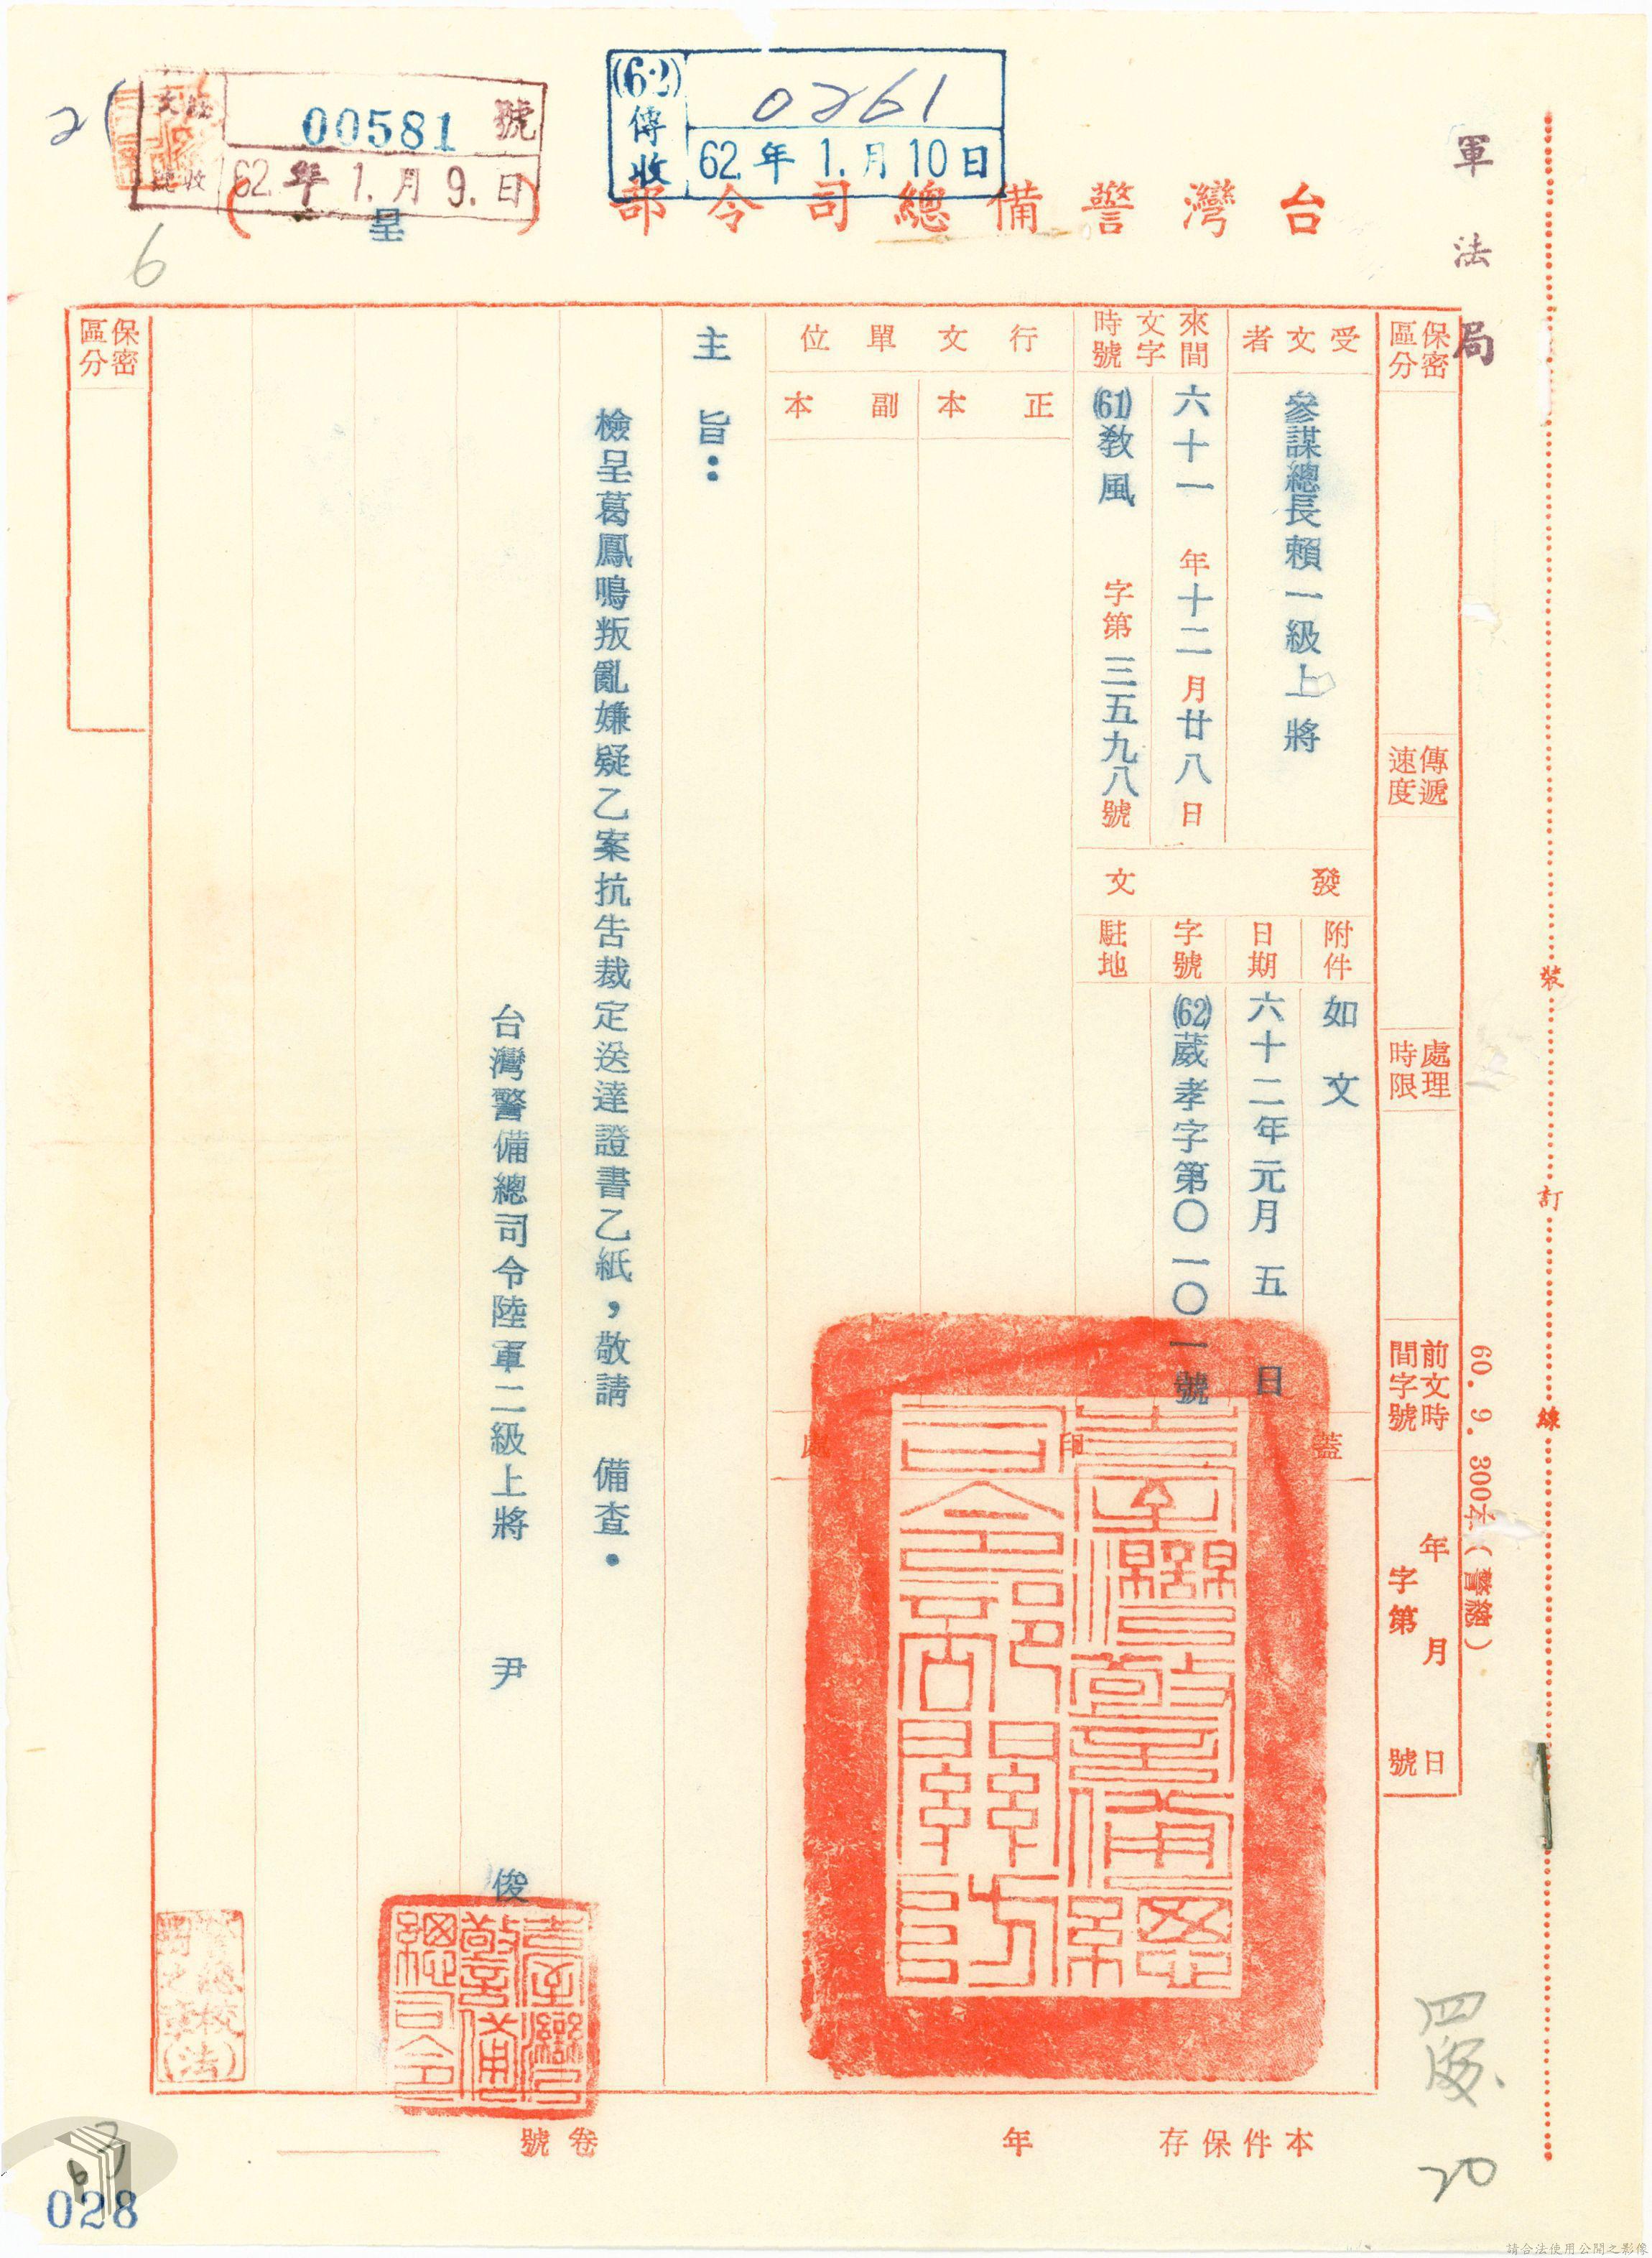 軍法局
台灣警備總司令部
(呈)
文收
00581號
62.年1.月9.日
(62)傳收
0261
62.年1.月10日
21
6
保密區分
傳遞速度
處理時限
前文時間字號
年月日
字第號
受文者
參謀總長賴一級上將
來文時間字號
六十一年十二月廿八日
(61)教風字第三五九八號
發文
附件
如文
日期
六十二年元月五日
字號
(62)葳孝字第〇一〇一號
駐地
行文單位
正本
副本
蓋印處
臺灣警備總司令部關防
主旨：
檢呈葛鳳鳴叛亂嫌疑乙案抗告裁定送達證書乙紙，敬請　備查。
台灣警備總司令陸軍二級上將　尹　俊
臺灣警備總司令
保密區分
裝訂線
60．9．300本（警總）
本件保存　年
卷號
20
63
028
請合法使用公開之影像